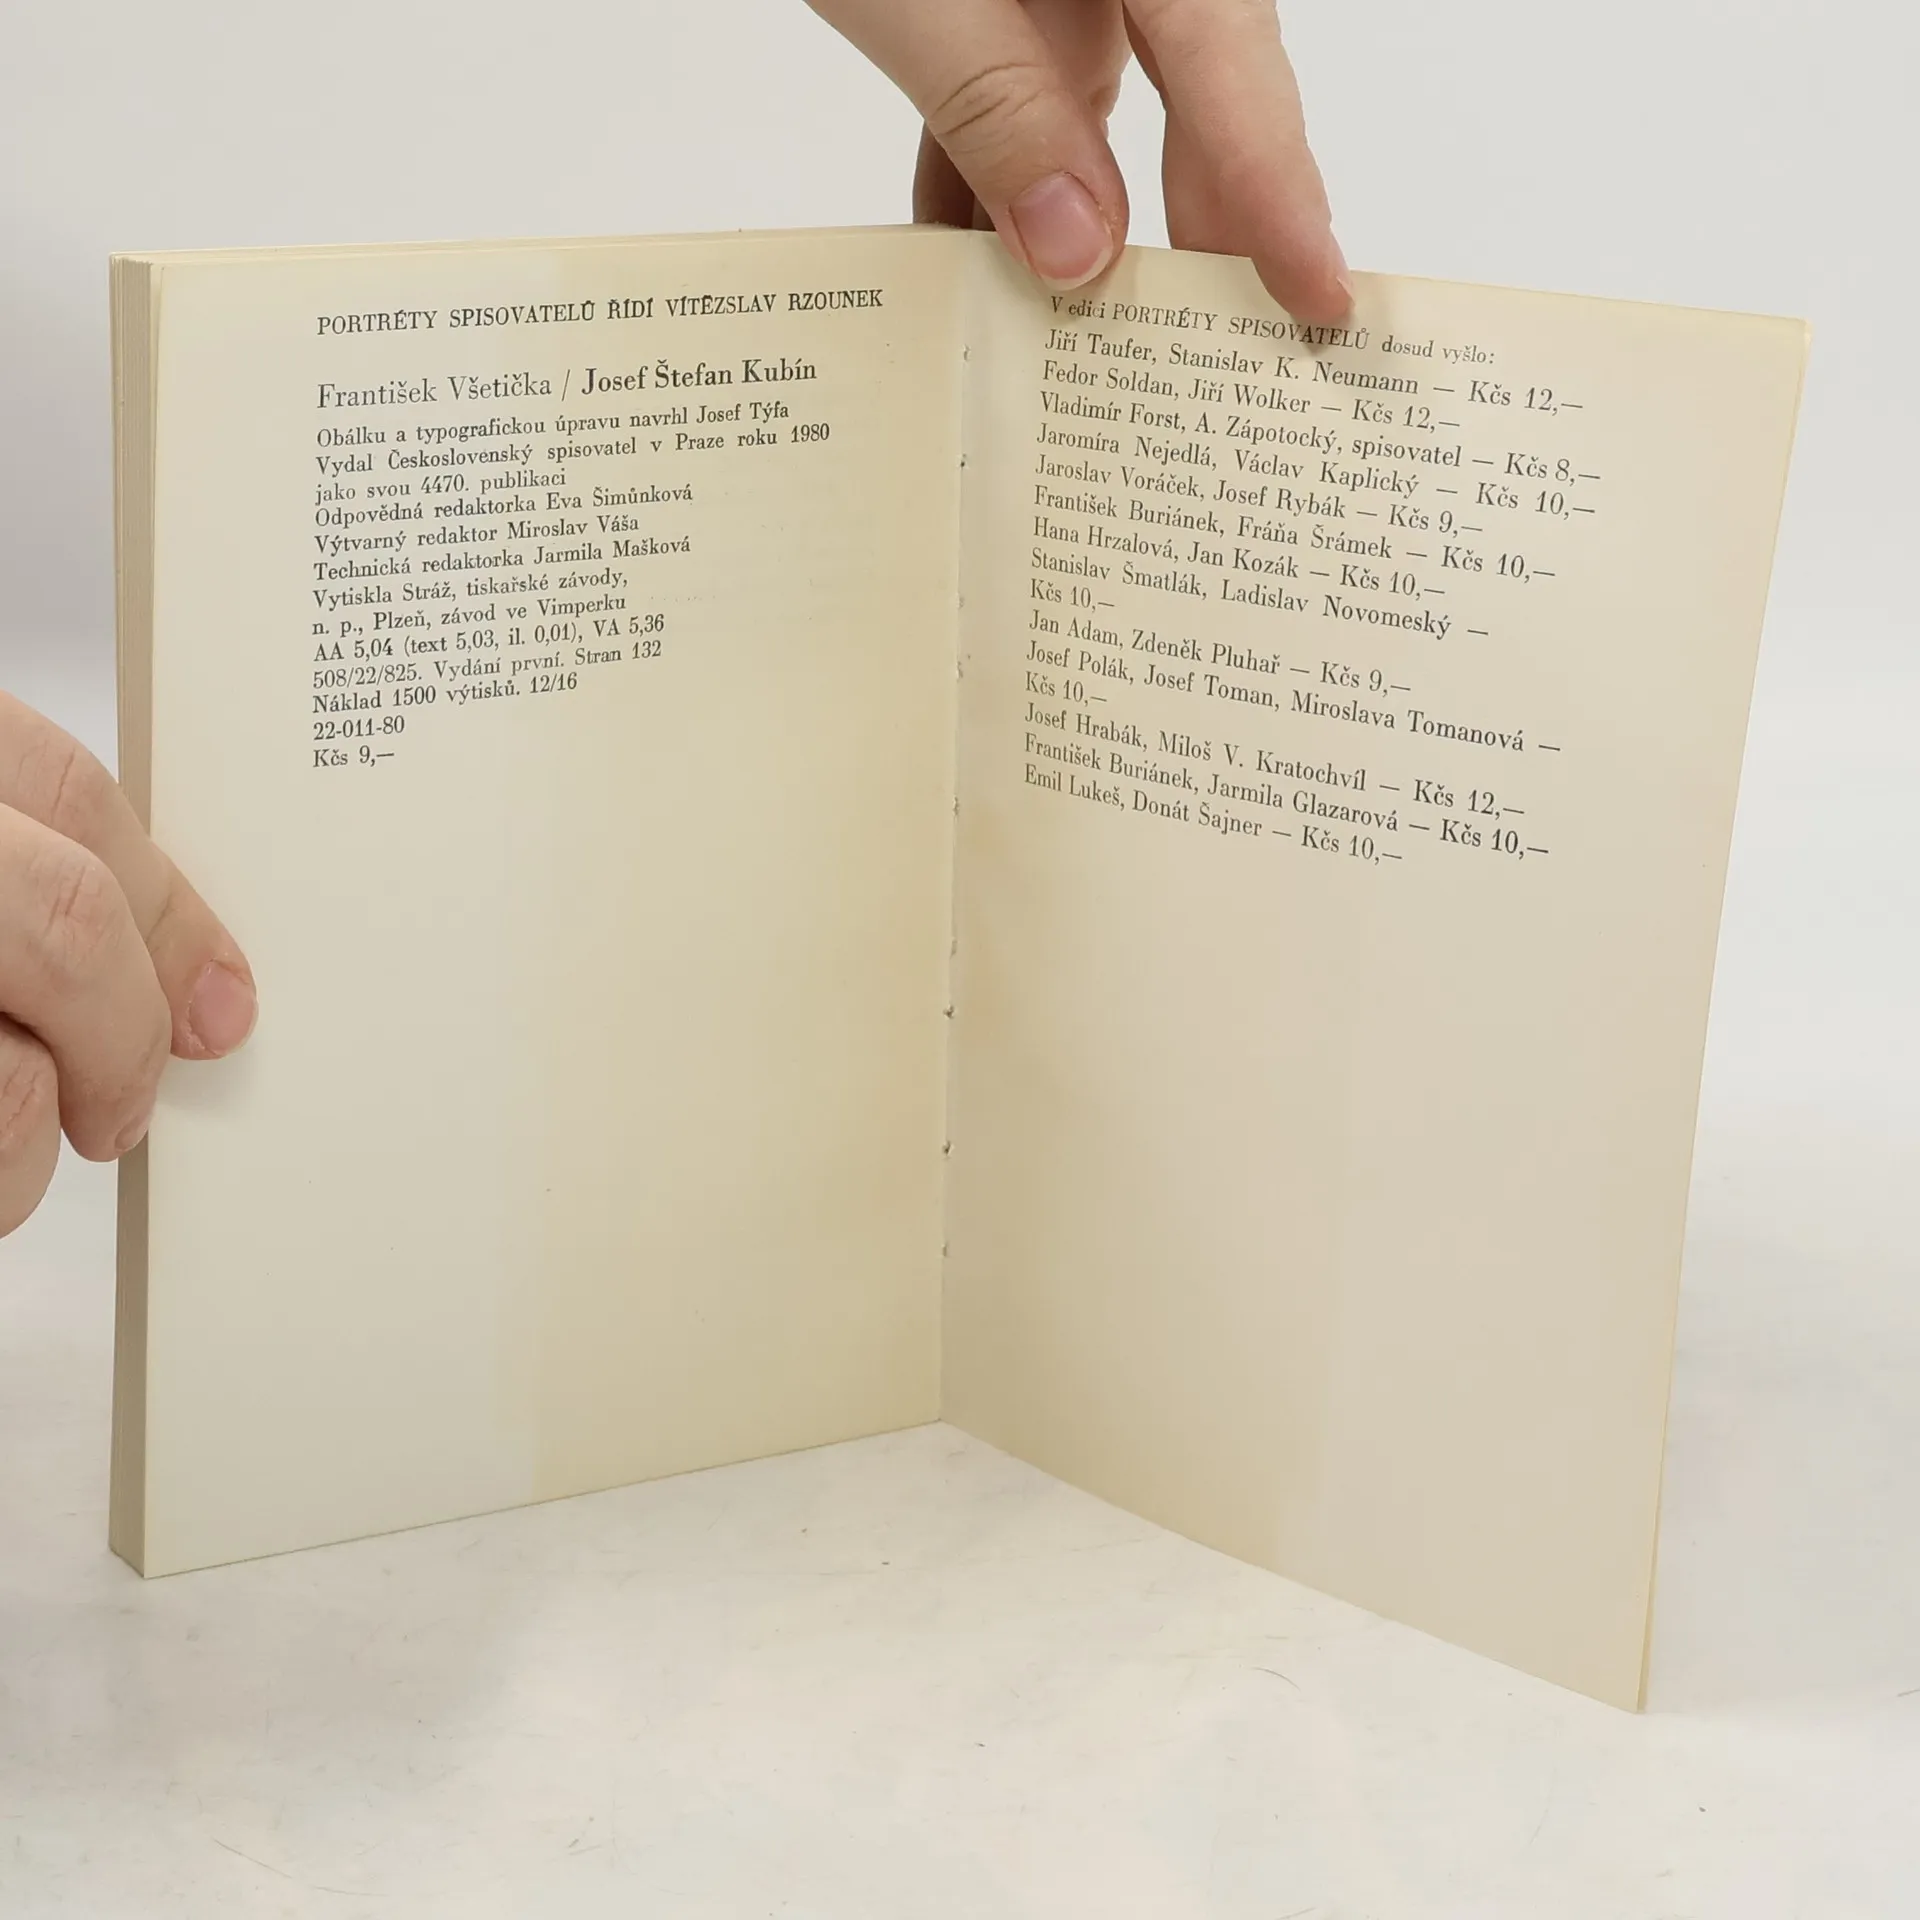 PORTRÉTY SPISOVATELŮ ŘÍDÍ VÍTĚZSLAV RZOUNEK
František Všetička / Josef Štefan Kubín
Obálku a typografickou úpravu navrhl Josef Týfa
Vydal Československý spisovatel v Praze roku 1980
jako svou 4470. publikaci
Odpovědná redaktorka Eva Šimůnková
Výtvarný redaktor Miroslav Váša
Technická redaktorka Jarmila Mašková
Vytiskla Stráž, tiskařské závody,
n. p., Plzeň, závod ve Vimperku
AA 5,04 (text 5,03, il. 0,01), VA 5,36
508/22/825. Vydání první. Stran 132
Náklad 1500 výtisků. 12/16
22-011-80
Kčs 9,—
V edici PORTRÉTY SPISOVATELŮ dosud vyšlo:
Jiří Taufer, Stanislav K. Neumann — Kčs 12,—
Fedor Soldan, Jiří Wolker — Kčs 12,—
Vladimír Forst, A. Zápotocký, spisovatel — Kčs 8,—
Jaromíra Nejedlá, Václav Kaplický — Kčs 10,—
Jaroslav Voráček, Josef Rybák — Kčs 9,—
František Buriánek, Fráňa Šrámek — Kčs 10,—
Hana Hrzalová, Jan Kozák — Kčs 10,—
Stanislav Šmatlák, Ladislav Novomeský —
Kčs 10,—
Jan Adam, Zdeněk Pluhař — Kčs 9,—
Josef Polák, Josef Toman, Miroslava Tomanová —
Kčs 10,—
Josef Hrabák, Miloš V. Kratochvíl — Kčs 12,—
František Buriánek, Jarmila Glazarová — Kčs 10,—
Emil Lukeš, Donát Šajner — Kčs 10,—